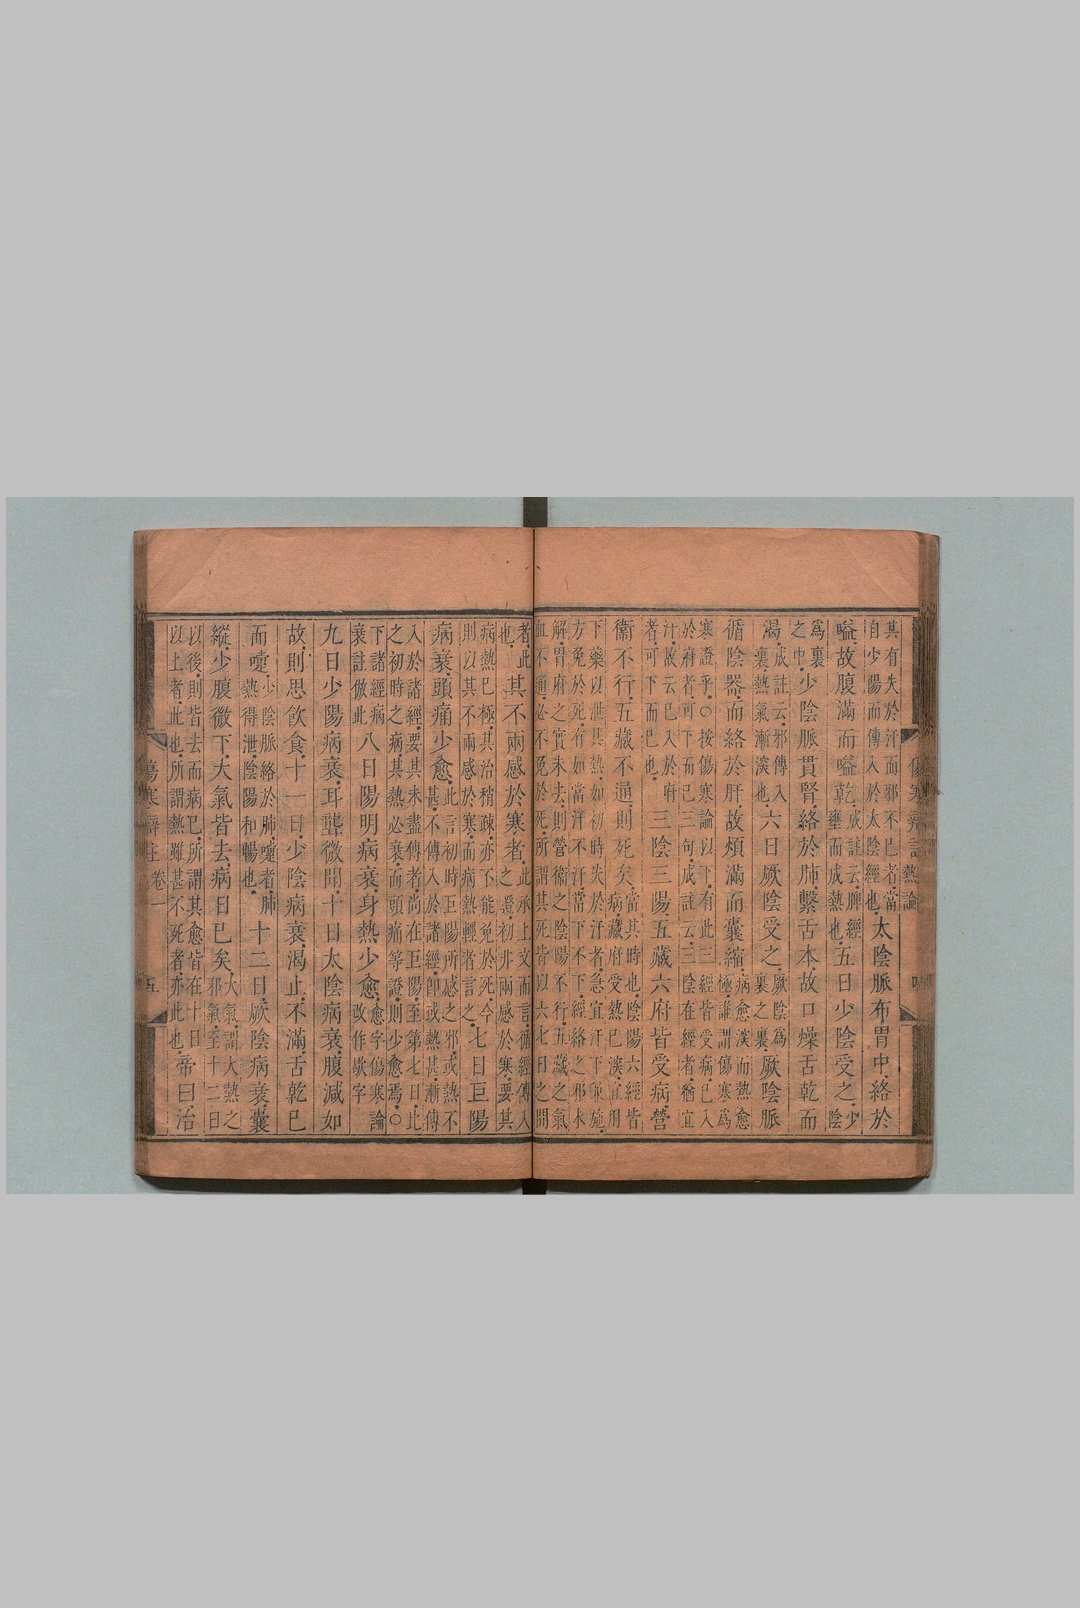 傷寒辯註 熱論 四
其有失於汗而邪不已者當自少陽而傳入於太陰經也太陰脈布胃中絡於
嗌故腹滿而嗌乾成註云脾經壅而成熱也五日少陰受之少陰
為裏之中少陰脈貫腎絡於肺繫舌本故口燥舌乾而
渴成註云邪傳入裏熱氣漸深也六日厥陰受之厥陰為裏之裏厥陰脈
循陰器而絡於肝故煩滿而囊縮病愈深而熱愈極誰謂傷寒為
寒證乎○按傷寒論以下有此三經皆受病已入於府者可下而已三句成註云三陰在經者猶宜
汗故云已入於府者可下而已也三陰三陽五藏六府皆受病營
衞不行五藏不通則死矣當其時也陰陽六經皆病藏府受熱已深宜用
下藥以泄其熱如初時失於汗者急宜汗下兼施方免於死有如當汗不汗當下不下經絡之邪未
解胃府之實未去則營衞之陰陽不行五藏之氣血不通必不免於死所謂其死皆以六七日之間
者此也其不兩感於寒者此承上文而言備經傳入之證初非兩感於寒要其
病熱已極其治稍疎亦不能免於死今則以其不兩感於寒而病熱輕者言之七日巨陽
病衰頭痛少愈此言初時巨陽所感之邪或熱不甚不傳入於諸經即或熱甚漸傳
入於諸經要其未盡傳者尚在巨陽至第七日此之初時之病其熱必衰而頭痛等證則少愈焉○
下諸經病衰註倣此八日陽明病衰身熱少愈愈字傷寒論改作歇字
九日少陽病衰耳聾微聞十日太陰病衰腹減如
故則思飲食十一日少陰病衰渴止不滿舌乾已
而嚏少陰脈絡於肺嚏者肺熱得泄陰陽和暢也十二日厥陰病衰囊
縱少腹微下大氣皆去病日已矣大氣謂大熱之邪氣至十二日
以後則皆去而病已所謂其愈皆在十日以上者此也所謂熱雖甚不死者亦此也帝曰治
傷寒辯註 卷一 五